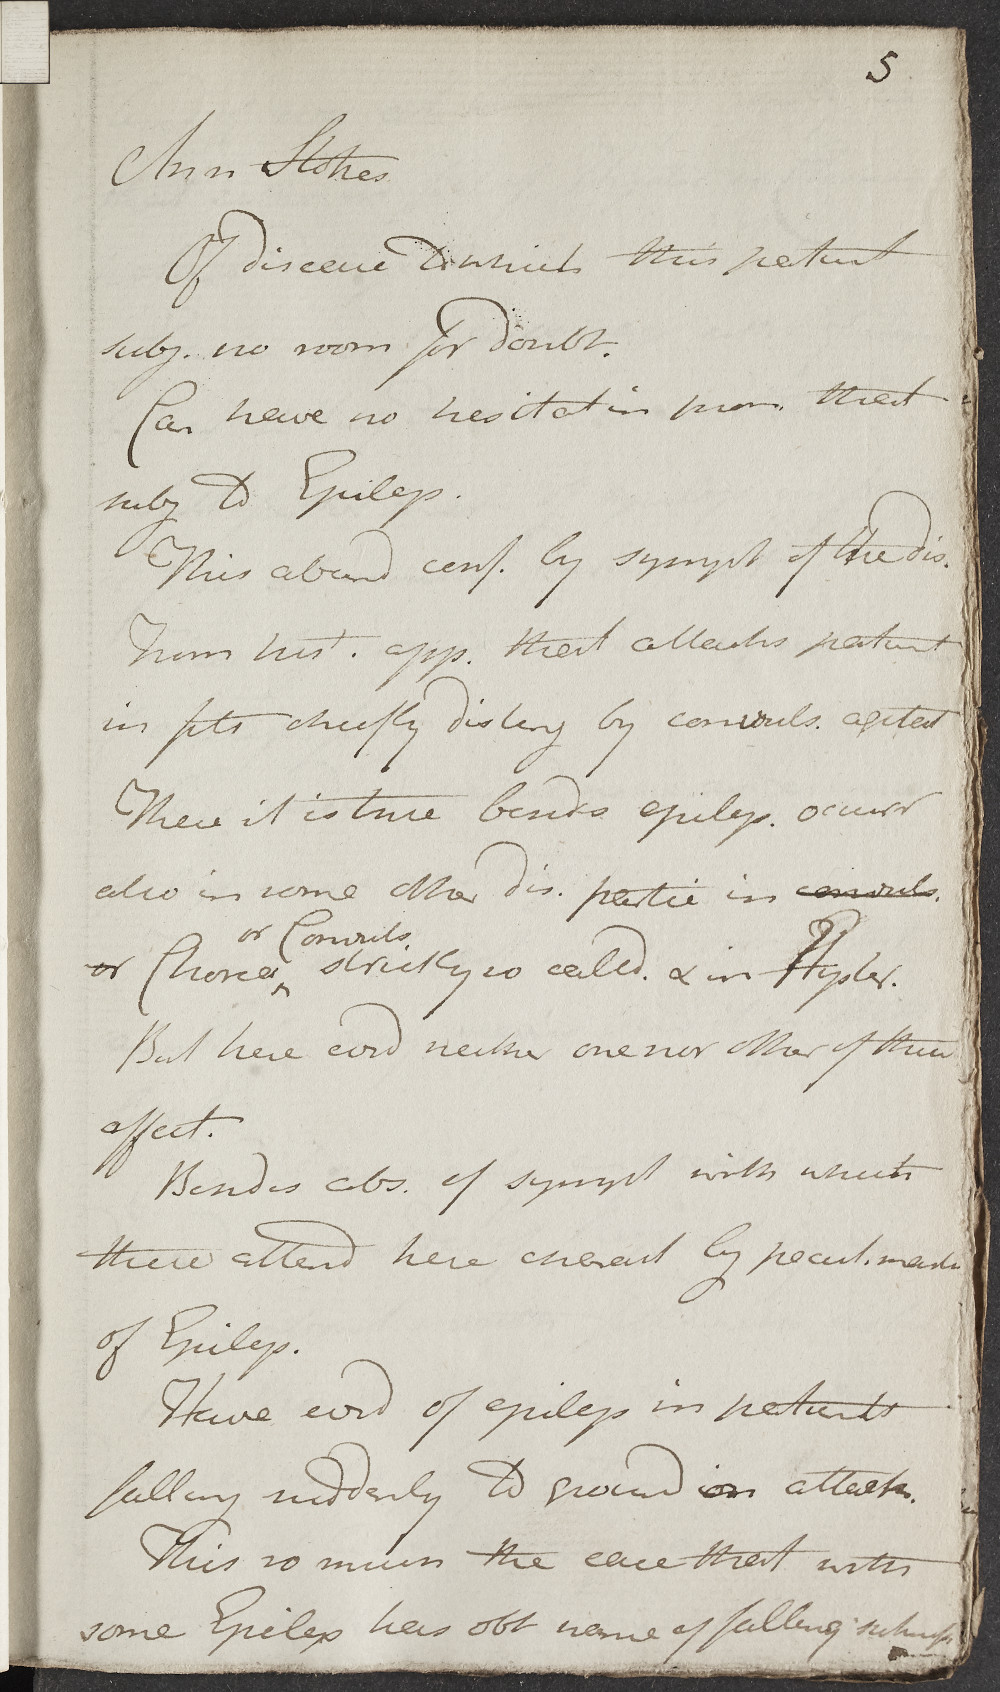 5
Ann Stokes
Of disease to which this patient
subj. no room for doubt.
Can have no hesitat in pron. that
subj to Epileps.
This abund conf. by sympt of the dis.
From hist. app. that attacks patient
in fits cheefly disting by convuls. agitat
These it is true besides epileps. occurr
also in some other dis. partic in convuls.
or Convuls
or Chorea ^ strictly so called. & in Hyster.
But here evid neither one nor other of these
affect.
Besides abs. of sympt with which
these attend here charact by pecul. marks
of Epileps.
Have evid of epileps in patients
falling suddenly to ground in attack.
This so much the case that with
some Epileps has obt name of falling sickness